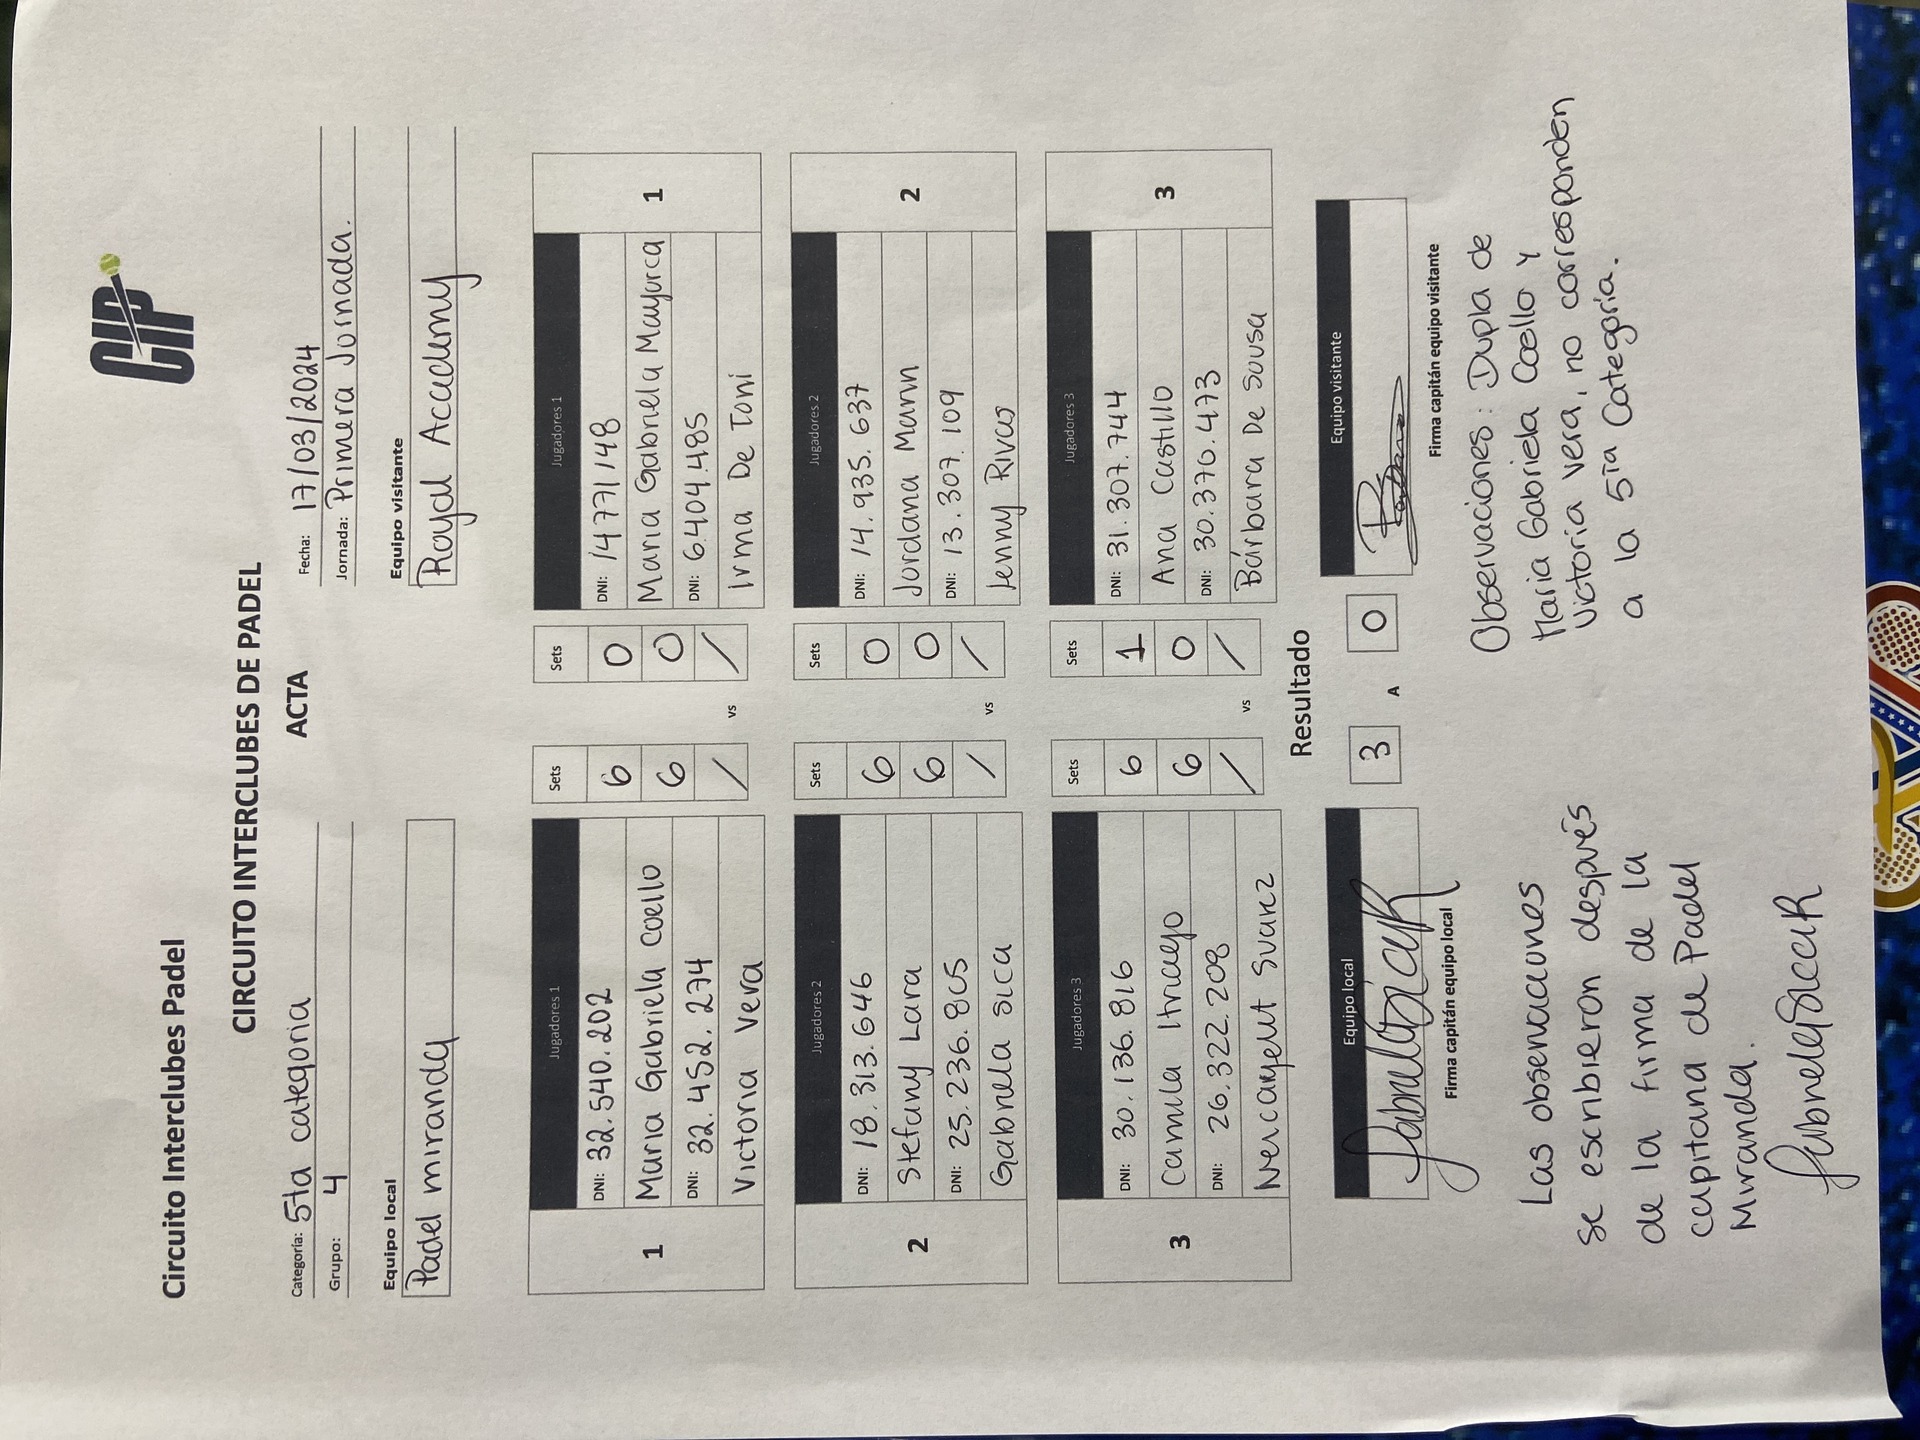 CIP
Circuito Interclubes Padel
CIRCUITO INTERCLUBES DE PADEL
ACTA
Categoría: 5ta categoria
Grupo: 4
Fecha: 17/03/2024
Jornada: Primera Jornada.
Equipo local
Padel miranda
Equipo visitante
Royal Academy
1
Jugadores 1
DNI: 32.540.202
Maria Gabriela Coello
DNI: 32.452.274
Victoria Vera
Sets
6
6
/
vs
Sets
0
0
/
Jugadores 1
DNI: 14771148
Maria Gabriela Mayurca
DNI: 6.404.485
Irma De Toni
1
2
Jugadores 2
DNI: 18.313.646
Stefany Lara
DNI: 25.236.865
Gabriela Sica
Sets
6
6
/
vs
Sets
0
0
/
Jugadores 2
DNI: 14.935.637
Jordana Mann
DNI: 13.307.109
Jenny Rivas
2
3
Jugadores 3
DNI: 30.136.816
Camila Itriago
DNI: 26.322.208
Suarez
Sets
6
6
/
vs
Sets
1
0
/
Jugadores 3
DNI: 31.307.744
Ana Castillo
DNI: 30.376.473
Bárbara De Sousa
3
Resultado
Equipo local
3
A
0
Equipo visitante
Firma capitán equipo local
Firma capitán equipo visitante
Observaciones: Dupla de
Maria Gabriela Coello y
Victoria Vera, no corresponden
a la 5ta Categoría.
Las observaciones
se escribieron después
de la firma de la
capitana de Padel
Miranda.